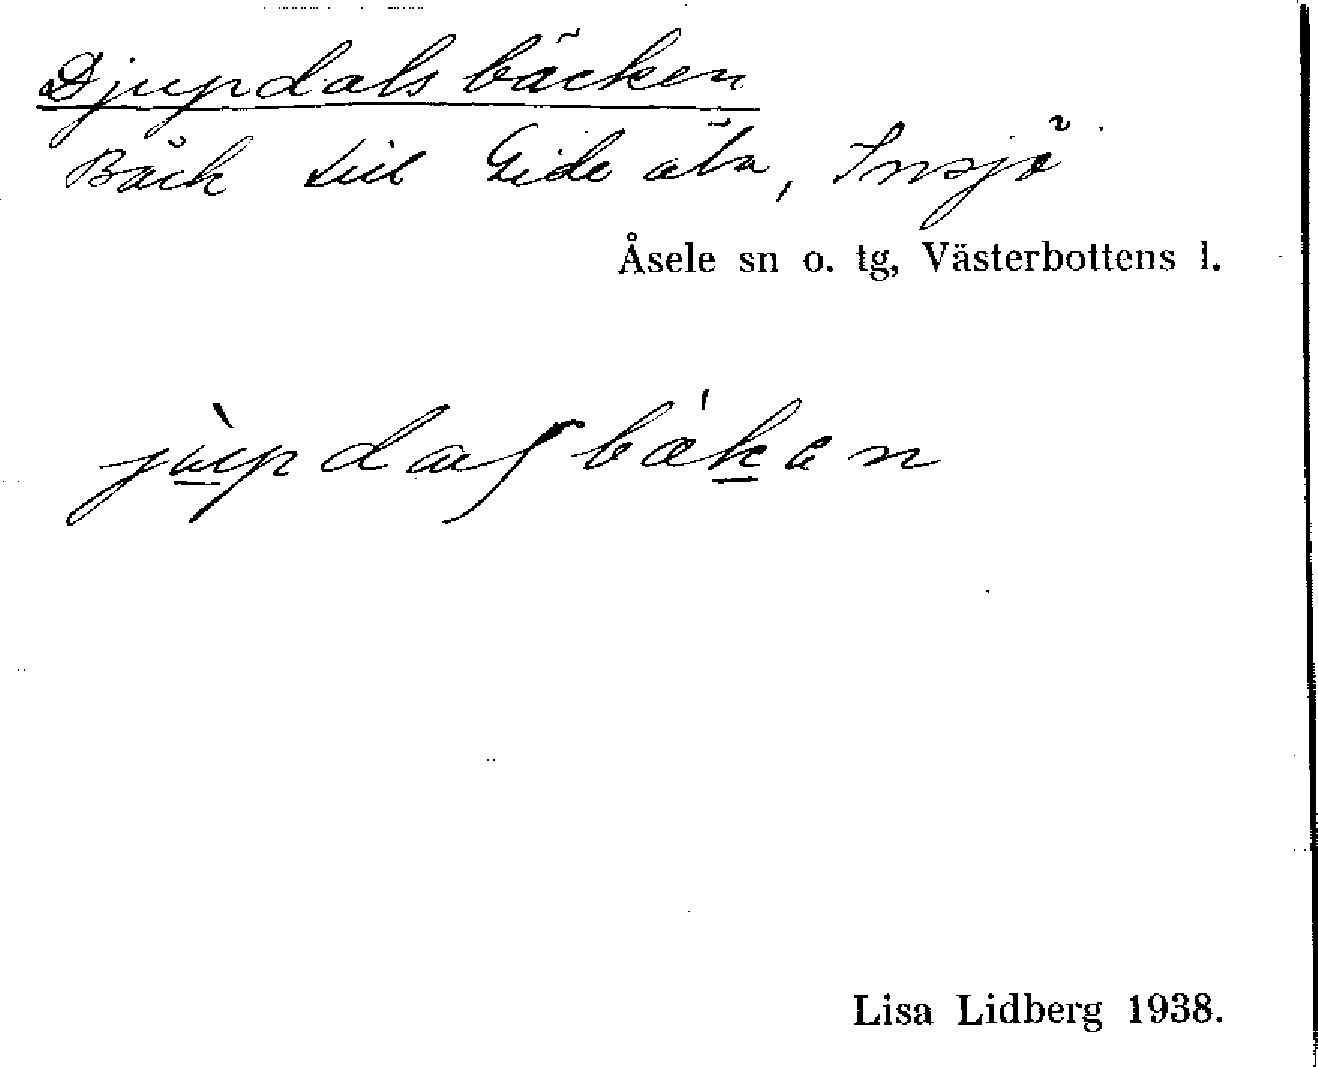 Djupdalsbäcken
Bäck till Gide älv, Insjö
Åsele sn o. tg, Västerbottens l.
jùpdaʃbä́ken
Lisa Lidberg 1938.